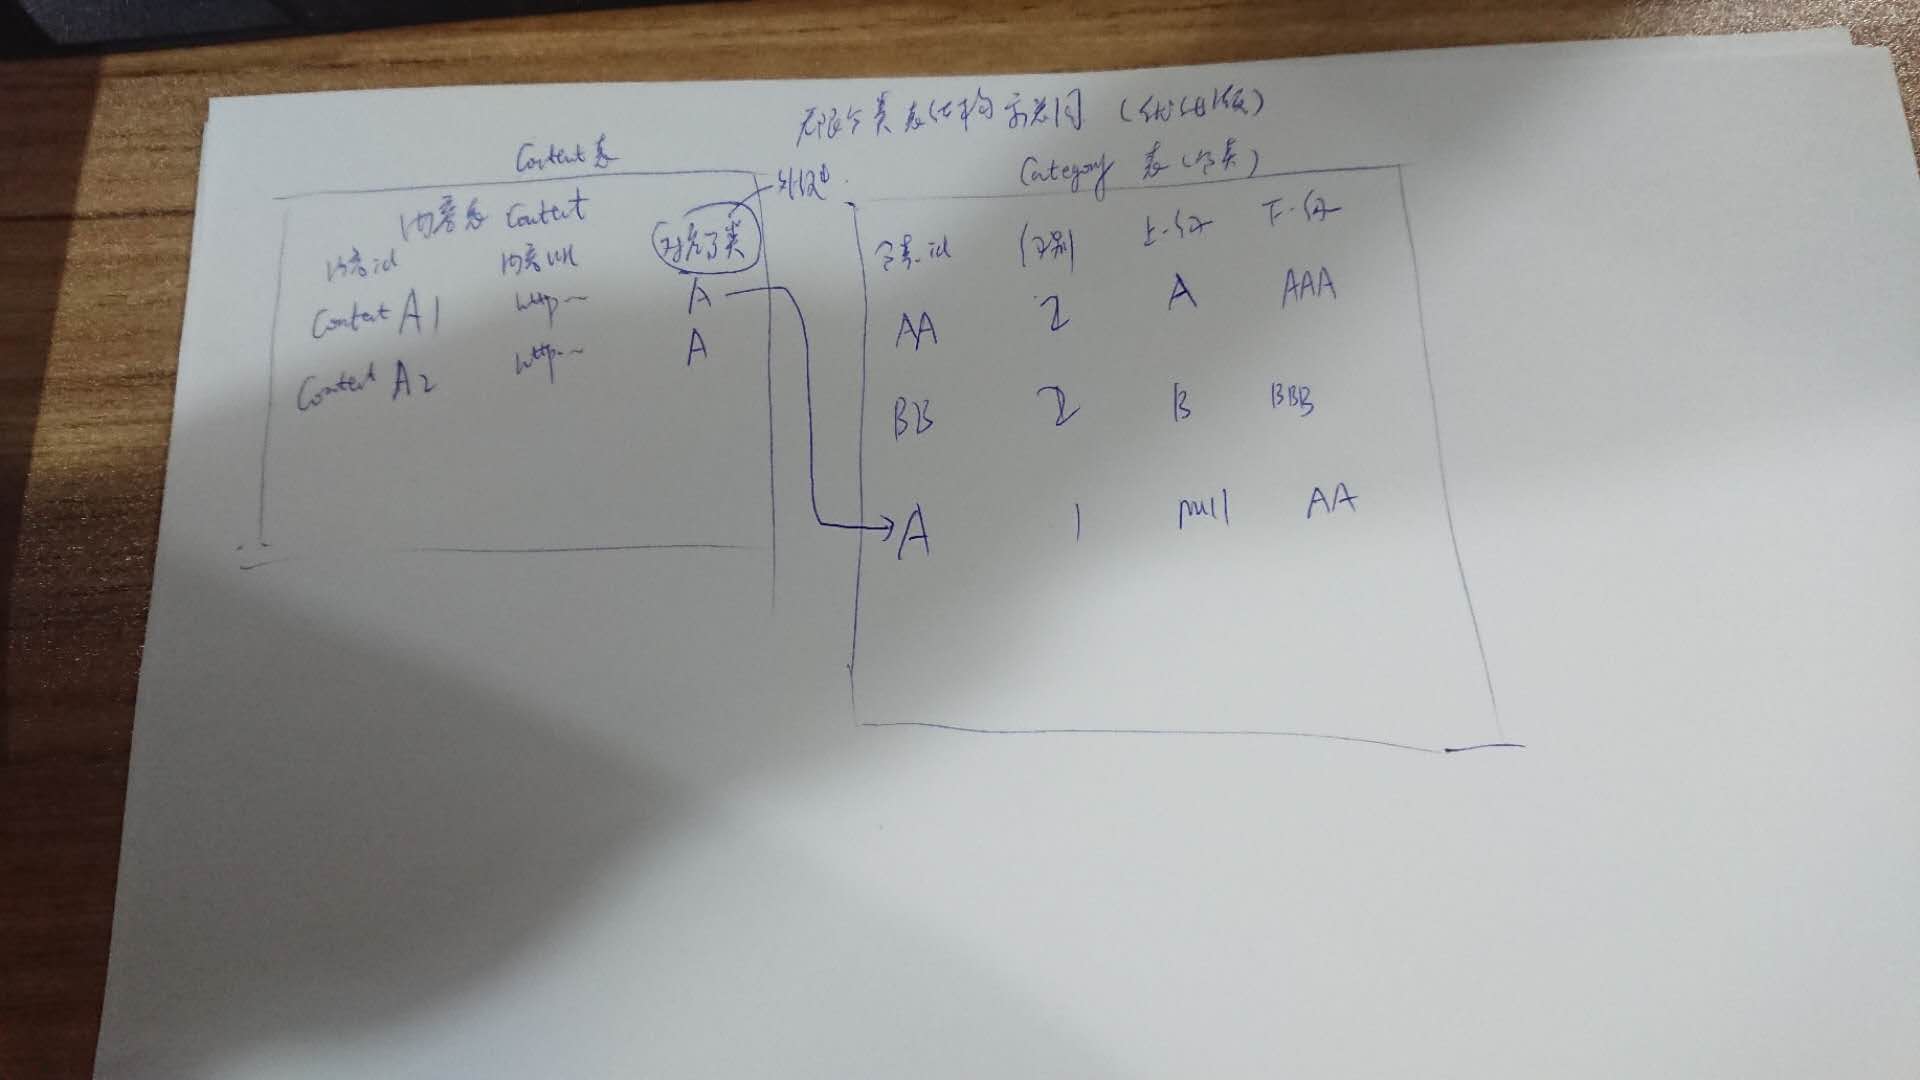 无限分类表结构示意图(优化版)
Content表
内容表 Content
内容id 内容url 对应分类
Content A1 http~ A
Content A2 http~ A
Category 表(分类)
分类id 级别 上一级 下一级
AA 2 A AAA
BB 2 B BBB
A 1 null AA